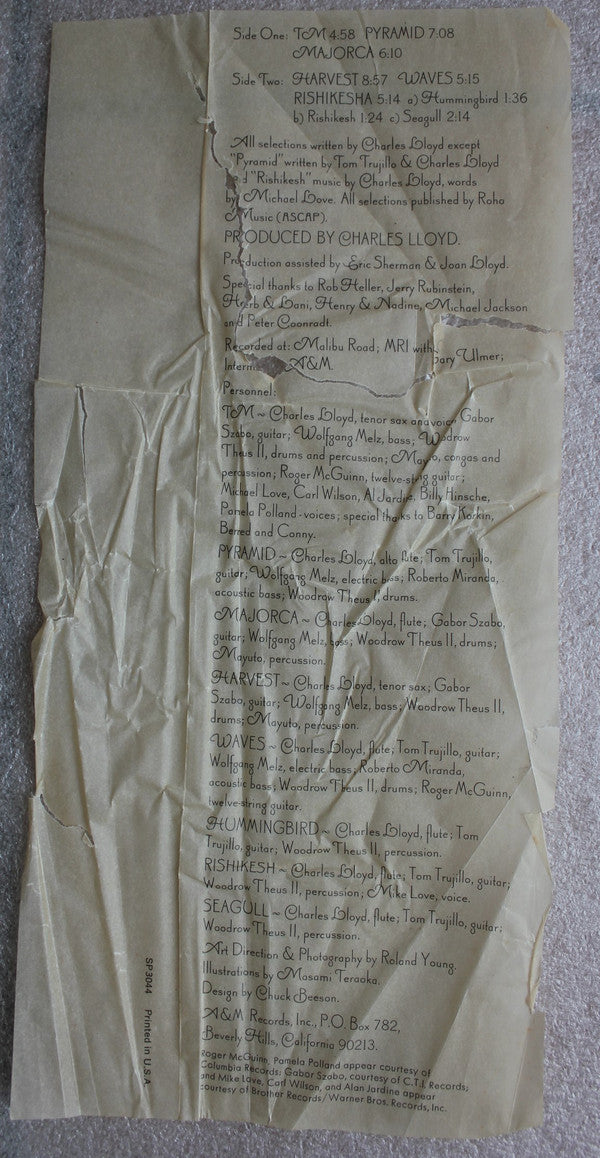 Side One: TM 4:58 PYRAMID 7:08
MAJORCA 6:10
Side Two: HARVEST 8:57 WAVES 5:15
RISHIKESHA 5:14 a) Hummingbird 1:36
b) Rishikesh 1:24 c) Seagull 2:14
All selections written by Charles Lloyd except
"Pyramid" written by Tom Trujillo & Charles Lloyd
d "Rishikesh" music by Charles Lloyd, words
by Michael Love. All selections published by Roha
Music (ASCAP).
PRODUCED BY CHARLES LLOYD.
Production assisted by Eric Sherman & Joan Lloyd.
Special thanks to Rob Heller, Jerry Rubinstein,
Herb & Lani, Henry & Nadine, Michael Jackson
and Peter Coonradt.
Recorded at: Malibu Road; MRI with Gary Ulmer;
Intern A&M.
Personnel:
TM ~ Charles Lloyd, tenor sax and voice Gabor
Szabo, guitar; Wolfgang Melz, bass; Woodrow
Theus II, drums and percussion; Mayuto, congas and
percussion; Roger McGuinn, twelve-string guitar;
Michael Love, Carl Wilson, Al Jardine, Billy Hinsche,
Pamela Polland - voices; special thanks to Barry Korkin,
Berred and Conny.
PYRAMID ~ Charles Lloyd, alto flute; Tom Trujillo,
guitar; Wolfgang Melz, electric bass; Roberto Miranda,
acoustic bass; Woodrow Theus II, drums.
MAJORCA ~ Charles Lloyd, flute; Gabor Szabo,
guitar; Wolfgang Melz, bass; Woodrow Theus II, drums;
Mayuto, percussion.
HARVEST ~ Charles Lloyd, tenor sax; Gabor
Szabo, guitar; Wolfgang Melz, bass; Woodrow Theus II,
drums; Mayuto, percussion.
WAVES ~ Charles Lloyd, flute; Tom Trujillo, guitar;
Wolfgang Melz, electric bass; Roberto Miranda,
acoustic bass; Woodrow Theus II, drums; Roger McGuinn,
twelve-string guitar.
HUMMINGBIRD ~ Charles Lloyd, flute; Tom
Trujillo, guitar; Woodrow Theus II, percussion.
RISHIKESH ~ Charles Lloyd, flute; Tom Trujillo, guitar;
Woodrow Theus II, percussion; Mike Love, voice.
SEAGULL ~ Charles Lloyd, flute; Tom Trujillo, guitar;
Woodrow Theus II, percussion.
Art Direction & Photography by Roland Young.
Illustrations by Masami Teraoka.
Design by Chuck Beeson.
A&M Records, Inc., P.O. Box 782,
Beverly Hills, California 90213.
Roger McGuinn, Pamela Polland appear courtesy of
Columbia Records; Gabor Szabo, courtesy of C.T.I. Records;
and Mike Love, Carl Wilson, and Alan Jardine appear
courtesy of Brother Records/Warner Bros. Records, Inc.
SP3044 Printed in U.S.A